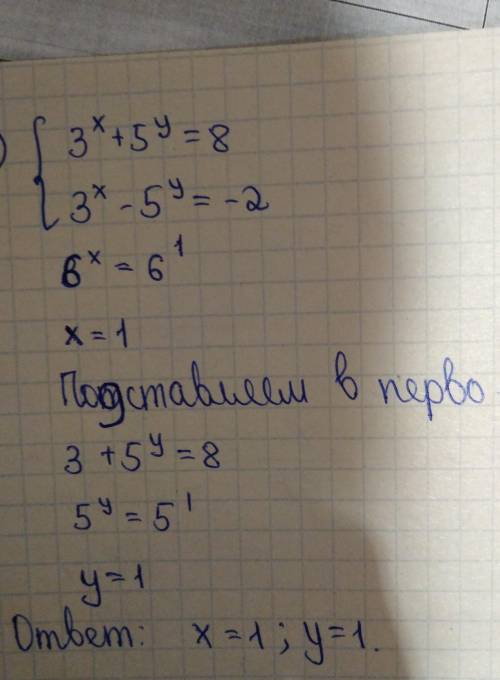 3^x + 5^y = 8
3^x - 5^y = -2
6^x = 6^1
x = 1
Подставляем в перво
3 + 5^y = 8
5^y = 5^1
y = 1
Ответ: x = 1; y = 1.